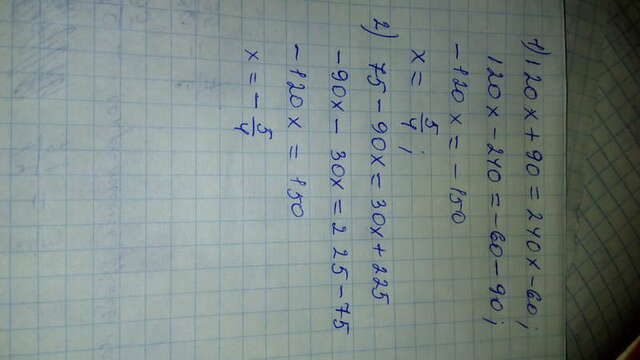 1) 120x + 90 = 240x - 60;
120x - 240 = -60 - 90;
-120x = -150
x = 5/4;
2) 75 - 90x = 30x + 225
-90x - 30x = 225 - 75
-120x = 150
x = - 5/4